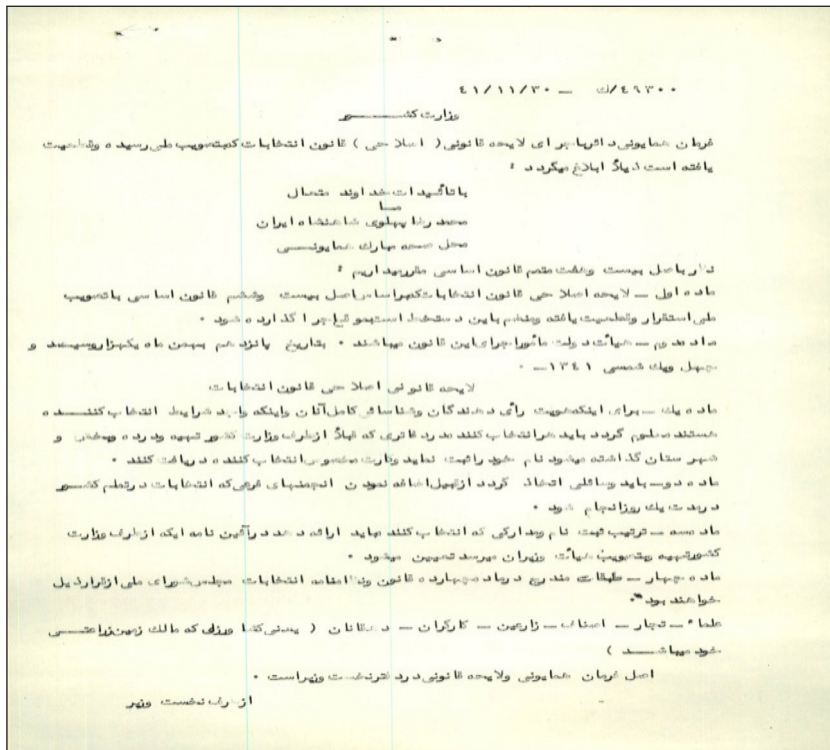 ۴۹۳۰۰/ك – ۴۱/۱۱/۳۰
وزارت کشـــــور
فرمان همایونی دائرباجرای لایحه قانونی ( اصلاحی ) قانون انتخابات که بتصویب ملی رسیده وقطعیت
یافته است ذیلاً ابلاغ میگردد :
باتائیدات خداوند متعال
مـا
محمد رضا پهلوی شاهنشاه ایران
محل صحه مبارك همایونــی
نظر باصل بیست وهفت متمم قانون اساسی مقررمیداریم :
ماده اول – لایحه اصلاحی قانون انتخابات که براساس اصل بیست وششم قانون اساسی باتصویب
ملی استقرار وقطعیت یافته ومنضم باین دستخط است بموقع اجرا گذارده شود .
ماده دوم – هیأت دولت مأموراجرای این قانون میباشند . بتاریخ پانزدهم بهمن ماه یکهزاروسیصد و
چهل ویك شمسی ۱۳٤۱ – .
لایحه قانونی اصلاحی قانون انتخابات
ماده یك – برای اینکه هویت رأی دهندگان وشناسائی کامل آنان واینکه واجد شرایط انتخاب کننــده
هستند معلوم گردد باید هرانتخاب کننده دردفاتری که قبلاً ازطرف وزارت کشور تهیه ودرده وبخش و
شهرستان گذاشته میشود نام خود راثبت نماید وکارت مخصوص انتخاب کننده دریافت کنند .
ماده دو – باید وسائلی اتخاذ گردد ازقبیل اضافه نمودن انجمنهای فرعی که انتخابات درتمام کشــور
درمدت یك روزانجام شود .
ماده سه – ترتیب ثبت نام ومدارکی که انتخاب کننده باید ارائه دهد درآئین نامه ایکه ازطرف وزارت
کشورتهیه وبتصویب هیأت وزیران میرسد تعیین میشود .
ماده چهار – طبقات مندرج درماده چهارده قانون ونظامنامه انتخابات مجلس شورای ملی ازقرارذیل
خواهند بود .
علماء – تجار – اصناف – زارعین – کارگران – دهقانان ( یعنی کشاورزی که مالك زمین زراعتــی
خود میباشــد )
اصل فرمان همایونی ولایحه قانونی دردفترنخست وزیراست .
ازطرف نخست وزیر